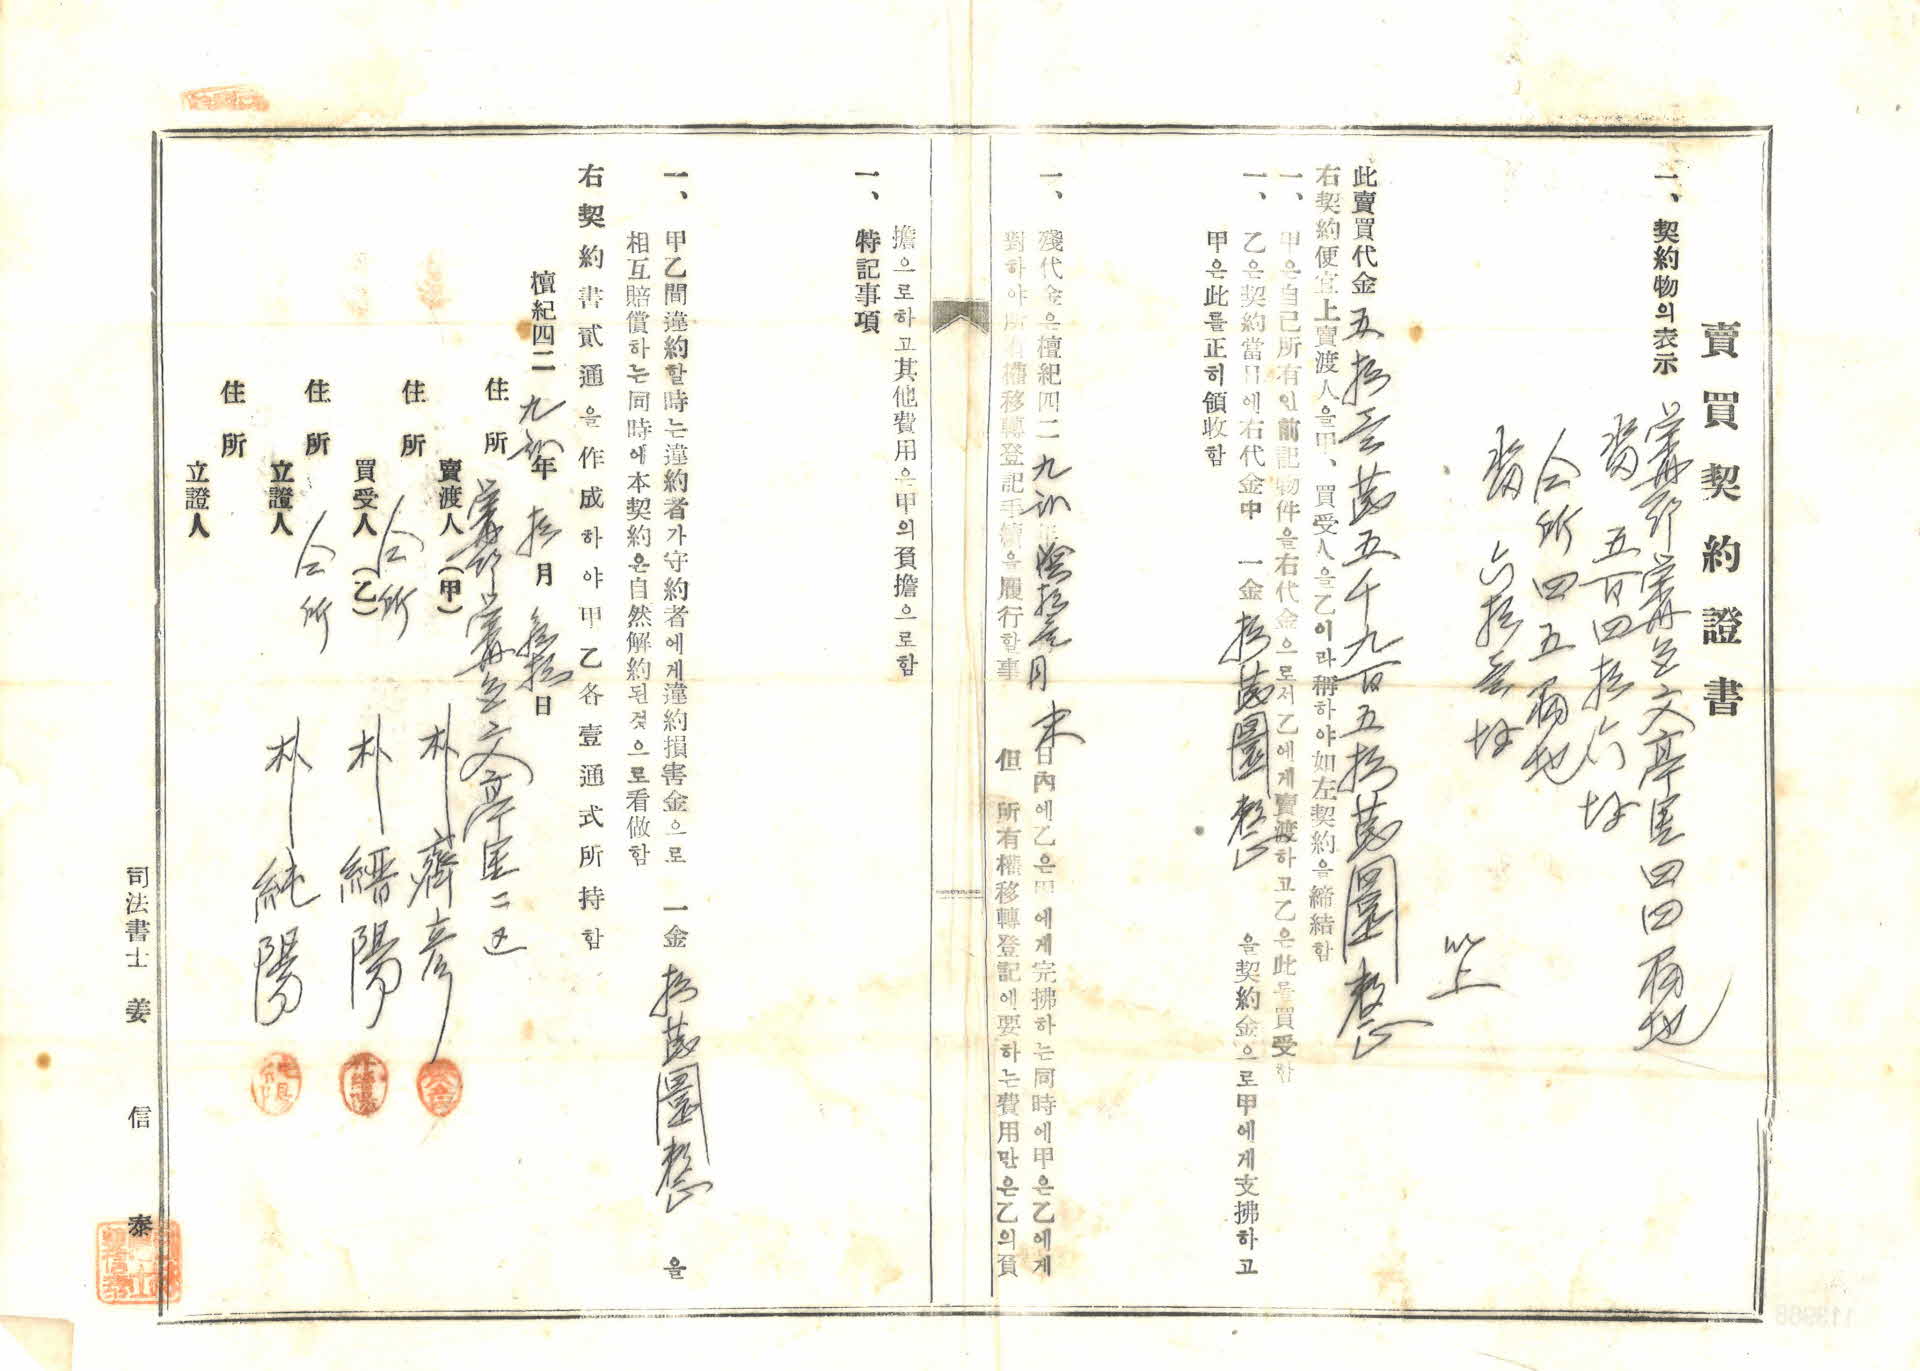 賣買契約證書
一、契約物의表示
寧郡寧邑文亭里四四番地
畓 五百四拾六坪
仝所四五番地
畓 六拾壹坪
以上
此賣買代金五拾壹萬五千九百五拾萬圜整
右契約便宜上賣渡人을甲、買受人을乙이라稱하야如左契約을締結함
一、甲은自己所有인前記物件을右代金으로서乙에게賣渡하고乙은此를買受함
一、乙은契約當日에右代金中 一金 拾萬圜整 을契約金으로甲에게支拂하고
甲은此를正히領收함
一、殘代金은檀紀四二九 年 陰拾壹月 末日內에乙은甲에게完拂하는同時에甲은乙에게
對하야所有權移轉登記手續을履行할事 但 所有權移轉登記에要하는費用만은乙의負
擔으로하고其他費用은甲의負擔으로함
一、特記事項
一、甲乙間違約할時는違約者가守約者에게違約損害金으로 一金 拾萬圜整 을
相互賠償하는同時에本契約은自然解約된것으로看做함
右契約書貳通을作成하야甲乙各壹通式所持함
檀紀四二九 年 拾月 日
住所 寧郡寧邑文亭里二区
賣渡人(甲) 朴齊彦
住所 仝所
買受人(乙) 朴縉陽
住所 仝所
立證人 朴純陽
住所
立證人
司法書士 姜信泰